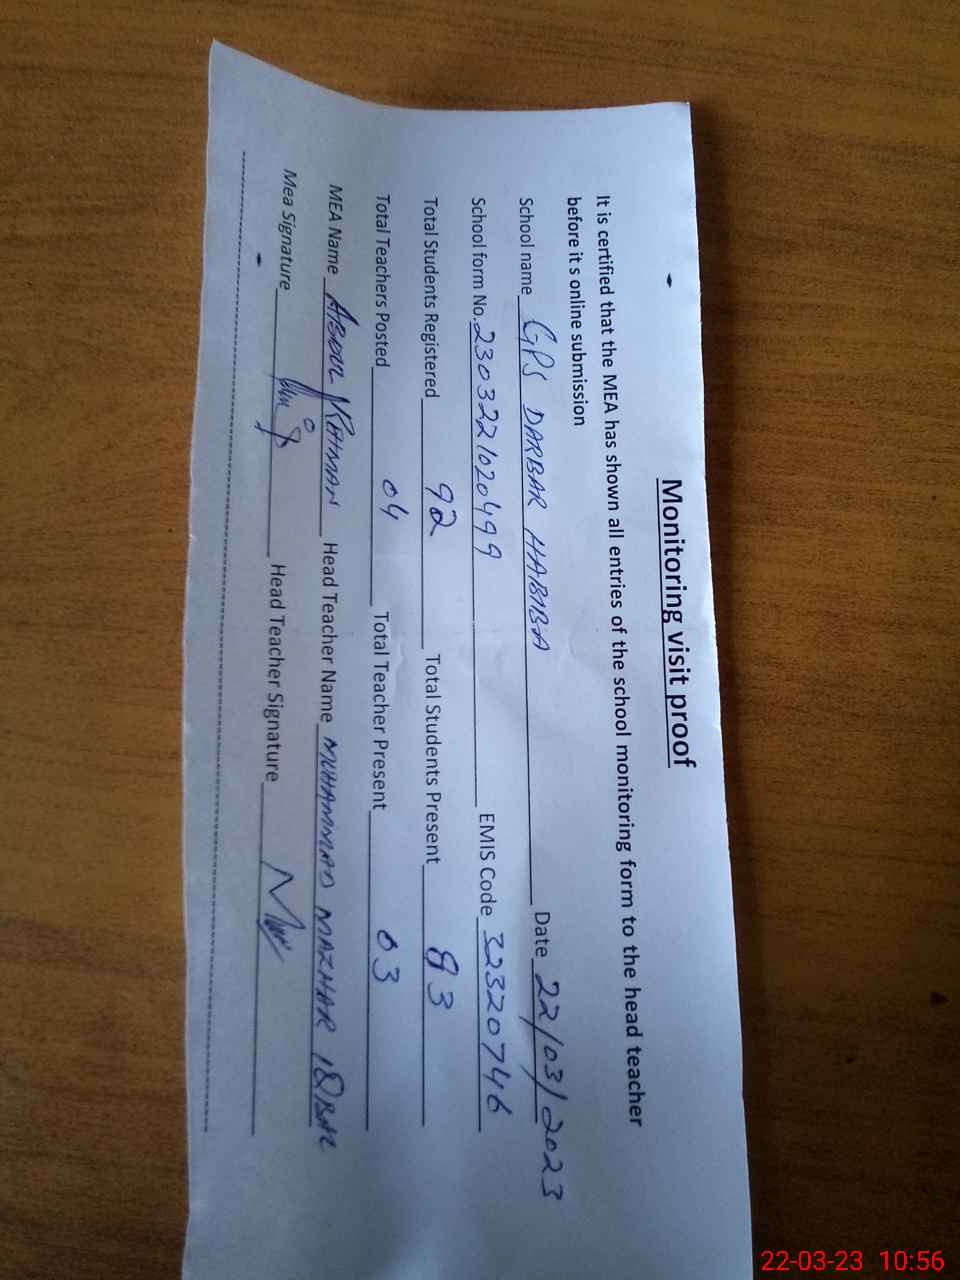 Monitoring visit proof
It is certified that the MEA has shown all entries of the school monitoring form to the head teacher
before it s online submission
School name GPS DARBAR HABIBA Date 22/03/2023
School form No. 230322102499 EMIS Code 32320746
Total Students Registered 92 Total Students Present 83
Total Teachers Posted 04 Total Teacher Present 03
MEA Name ABDUL REHMAN Head Teacher Name MUHAMMAD MAZHAR IQBAL
Mea Signature Head Teacher Signature
22-03-23 10:56